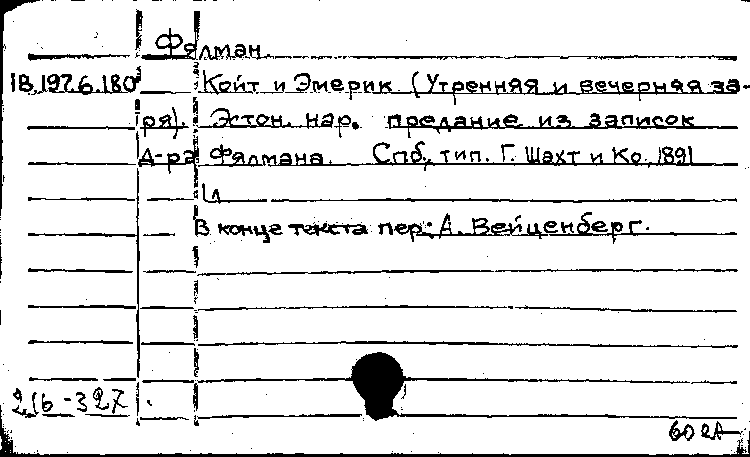 Фялман.
18.197.6.180 Койт и Эмерик (Утренняя и вечерняя за-
ря). Эстон. нар. предание из записок
д-ра Фялмана. Спб, тип. Г. Шахт и Ко, 1891
В конце текста пер: А. Вейценберг.
216-327